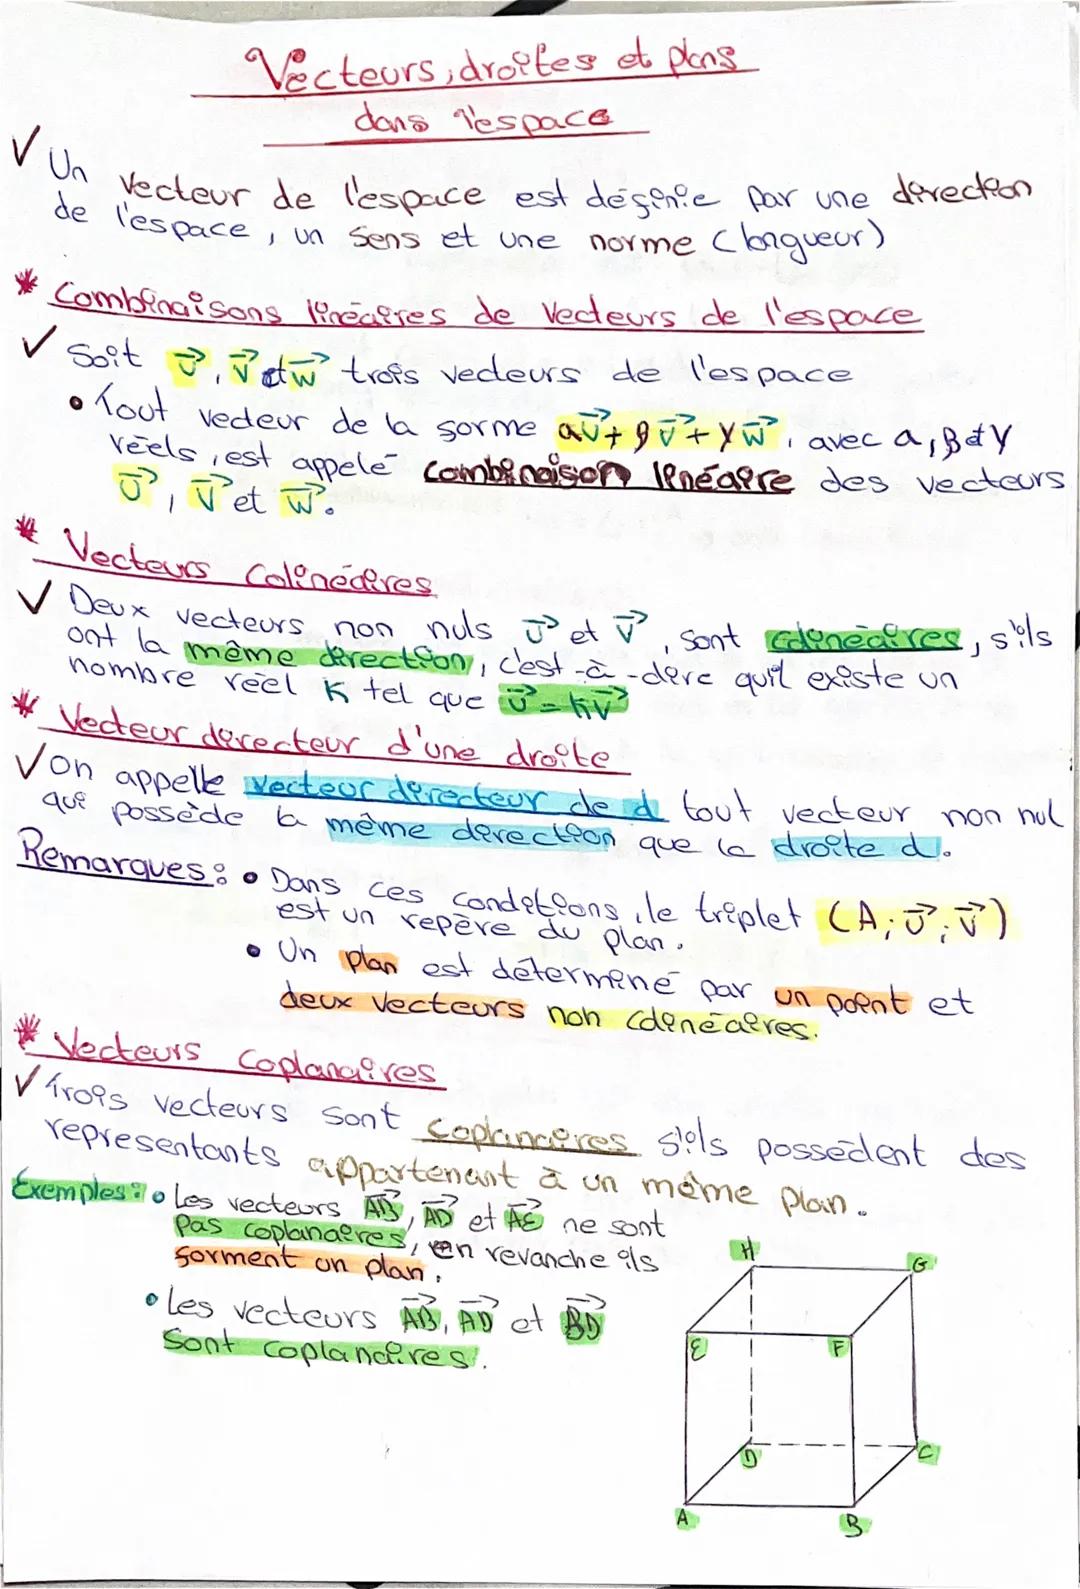 Vecteurs, droites et plans
dans l'espace
✓ Un vecteur de l'espace est définie par une direction
de l'espace, un sens et une norme (longueur)
* Combinaisons linéaires de vecteurs de l'espace
✓ Soit u⃗, v⃗ et w⃗ trois vecteurs de l'espace
• Tout vecteur de la forme αu⃗ + βv⃗ + γw⃗, avec α, β et γ
réels, est appelé combinaison linéaire des vecteurs
u⃗, v⃗ et w⃗.
* Vecteurs Colinéaires
✓ Deux vecteurs non nuls u⃗ et v⃗, sont colinéaires, s'ils
ont la même direction, c'est-à-dire qu'il existe un
nombre réel K tel que u⃗ = kv⃗
* Vecteur directeur d'une droite
✓ On appelle vecteur directeur de d tout vecteur non nul
qui possède la même direction que la droite d.
Remarques : • Dans ces conditions, le triplet (A; u⃗; v⃗)
est un repère du plan.
• Un plan est déterminé par un point et
deux vecteurs non colinéaires.
* Vecteurs Coplanaires
✓ Trois vecteurs sont coplanaires s'ils possèdent des
representants appartenant à un même plan.
Exemples : • Les vecteurs AB⃗, AD⃗ et AE⃗ ne sont
pas coplanaires, en revanche ils
forment un plan.
• Les vecteurs AB⃗, AD⃗ et BD⃗
sont coplanaires.
H
G
E
F
D
C
A
B